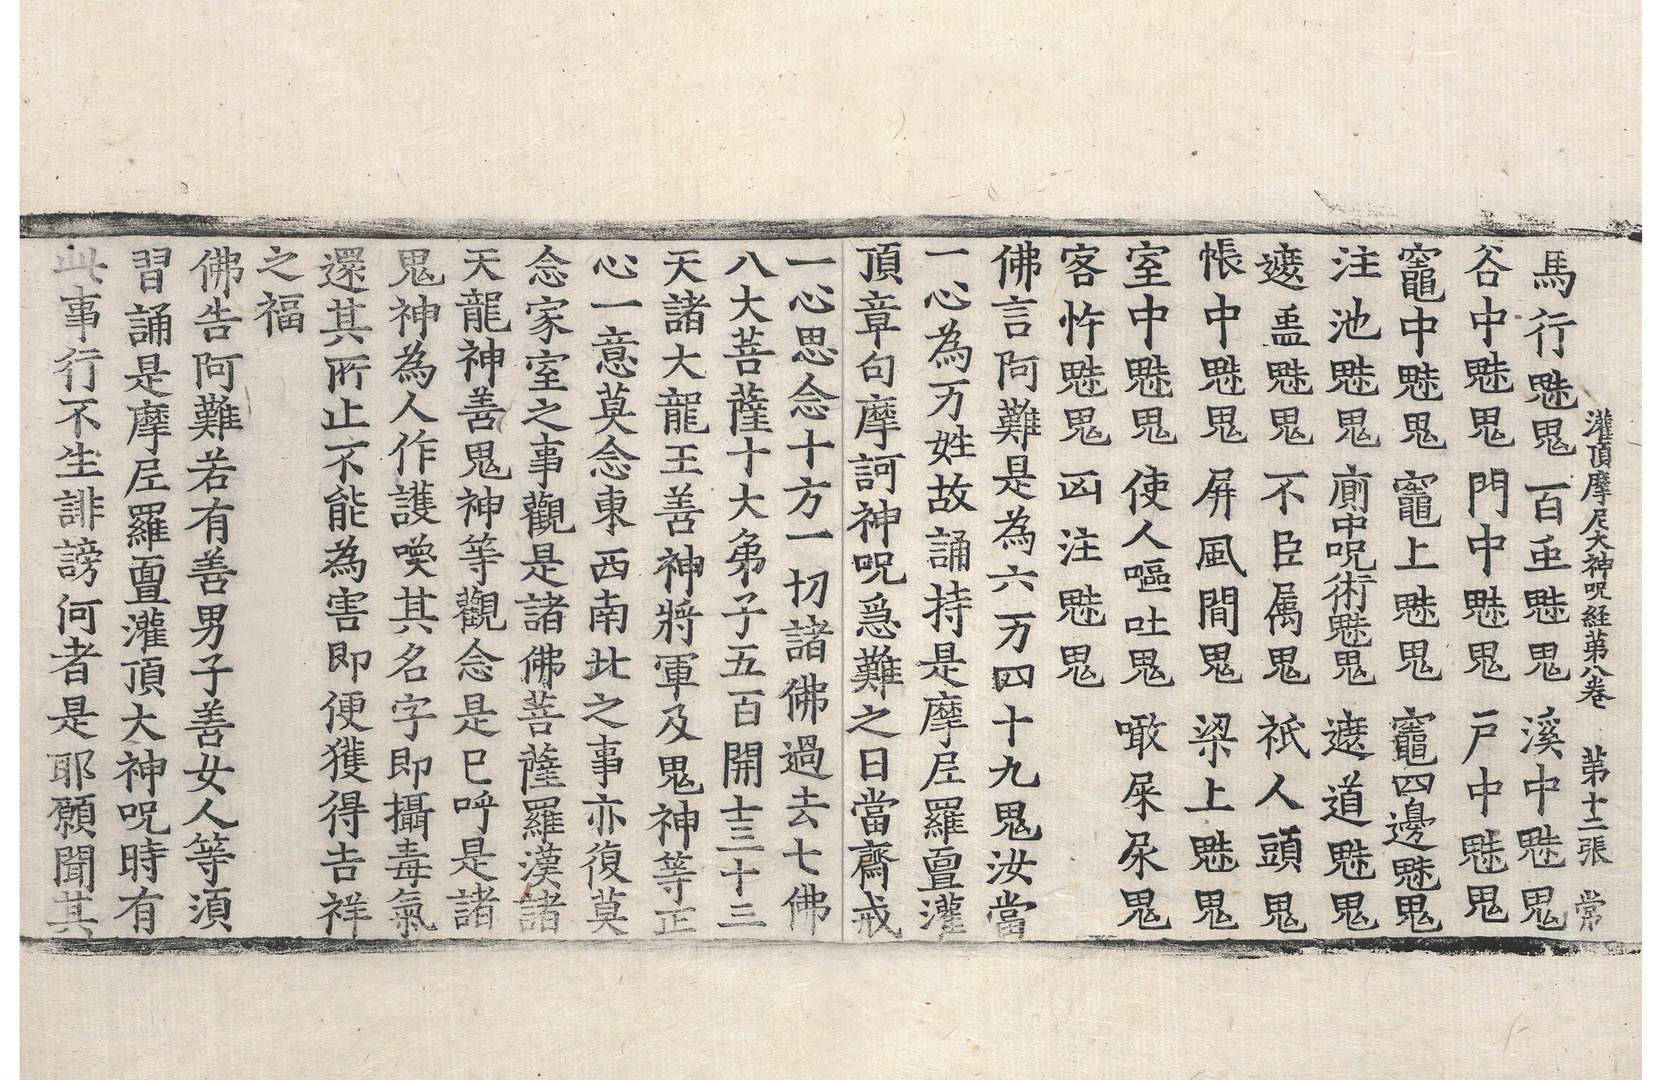 灌頂摩尼大神呪経苐八卷　苐十二張　常
馬行魅鬼　百䖝魅鬼　溪中魅鬼
谷中魅鬼　門中魅鬼　戶中魅鬼
竈中魅鬼　竈上魅鬼　竈四邊魅鬼
注池魅鬼　廁中呪術魅鬼　遮道魅鬼
遮盂魅鬼　不臣属鬼　祇人頭鬼
帳中魅鬼　屏風間鬼　梁上魅鬼
室中魅鬼　使人嘔吐鬼　噉屎尿鬼
客忤魅鬼　凶注魅鬼
佛言阿難是為六万四十九鬼汝當
一心為万姓故誦持是摩尼羅亶灌
頂章句摩訶神呪爲難之日當齋戒
一心思念十方一切諸佛過去七佛
八大菩薩十大弟子五百開士三十三
天諸大龍王善神將軍及鬼神等正
心一意莫念東西南北之事亦復莫
念家室之事觀是諸佛菩薩羅漢諸
天龍神善鬼神等觀念是巳呼是諸
鬼神為人作護喚其名字即攝毒氣
還其所止不能為害即便獲得吉祥
之福
佛告阿難若有善男子善女人等須
習誦是摩尼羅亶灌頂大神呪時有
此事行不生誹謗何者是耶願聞其